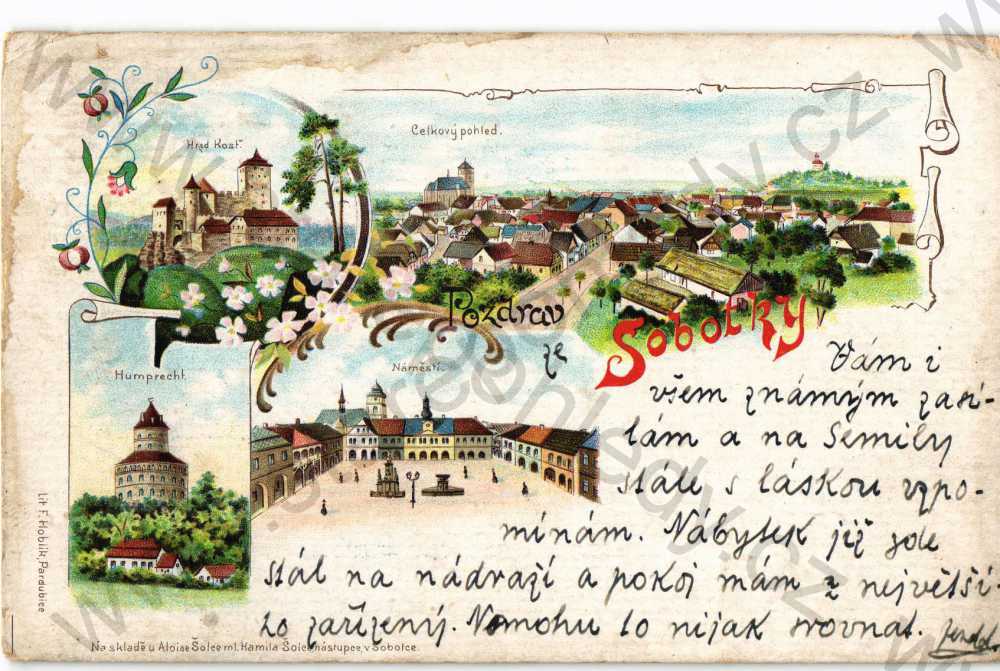 Hrad Kost.
Celkový pohled.
Pozdrav
ze
Sobotky
Humprecht.
Náměstí.
Vám i
všem známým zasí-
lám a na Semily
stále s láskou vzpo-
mínám. Nábytek již zde
stál na nádraží a pokoj mám z největší
zo zařízený. Nemohu to nijak srovnat.
Lit F. Hoblík, Pardubice
Na skladě u Aloise Šolce ml. Kamila Šolce nástupce, v Sobotce.